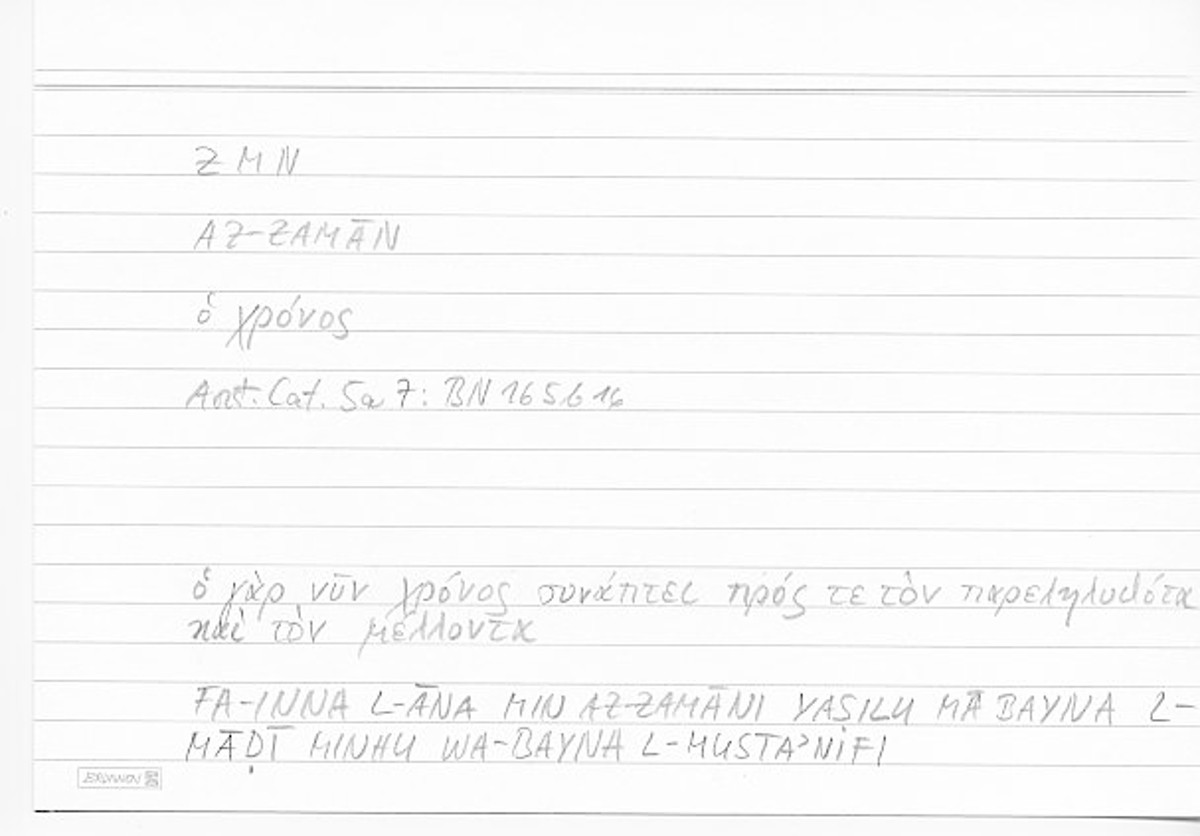 Z M N
AZ-ZAMĀN
ὁ χρόνος
Arist. Cat. 5a 7: BN 165b16
ὁ γὰρ νῦν χρόνος συνάπτει πρός τε τὸν παρεληλυθότα
καὶ τὸν μέλλοντα
FA-INNA L-ĀNA MIN AZ-ZAMĀNI YAṢILU MĀ BAYNA L-
MĀḌĪ MINHU WA-BAYNA L-MUSTAʾNIFI